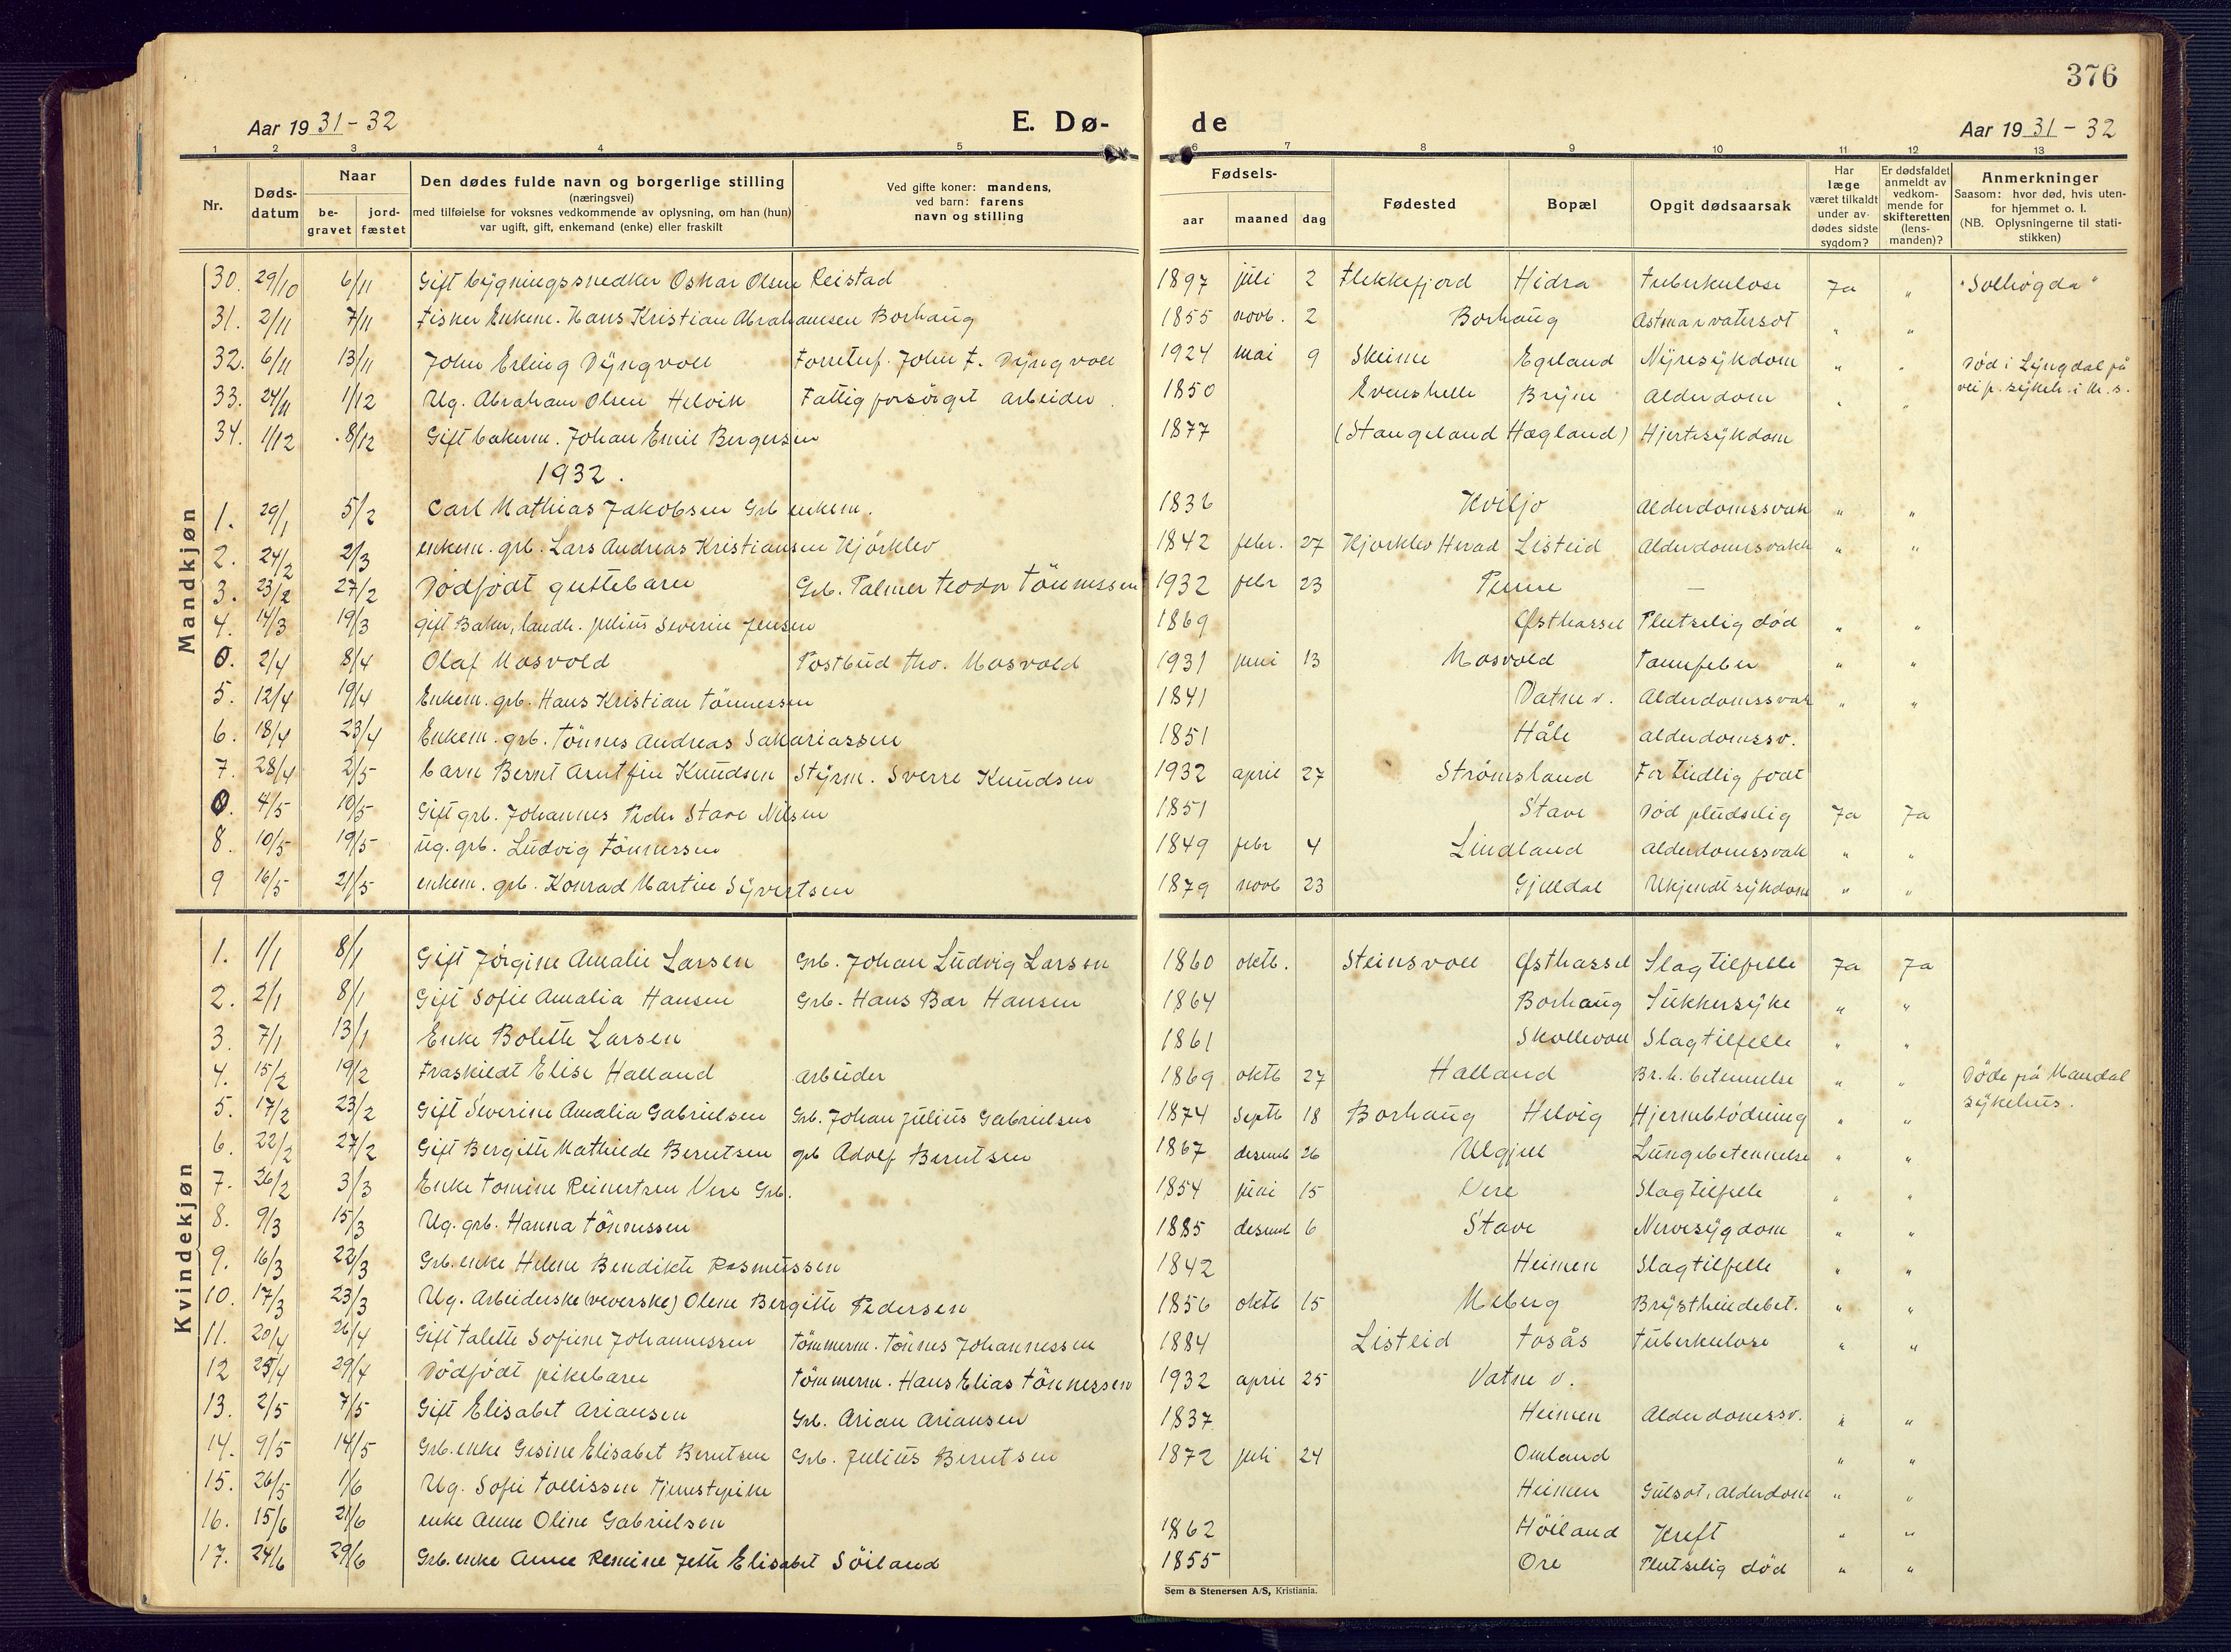 376
Aar 1931-32 E. Dø- de Aar 1931-32
1 2 3 4 5 6 7 8 9 10 11 12 13
Nr. Døds-datum Naar be-gravet jord-fæstet Den dødes fulde navn og borgerlige stilling (næringsvei) med tilføielse for voksnes vedkommende av oplysning, om han (hun) var ugift, gift, enkemand (enke) eller fraskilt Ved gifte koner: mandens, ved barn: farens navn og stilling Fødsels- aar maaned dag Fødested Bopæl Opgit dødsaarsak Har læge været tilkaldt under av-dødes sidste sygdom? Er dødsfaldet anmeldt av vedkom-mende for skifteretten (lens-manden)? Anmerkninger Saasom: hvor død, hvis uten-for hjemmet o. l. (NB. Oplysningerne til stati-stikken)
Mandkjøn
30. 29/10 6/11 Gift bygningssnedker Oskar Olsen Reistad 1897 juli 2 Flekkefjord Hidra Tuberkulose Ja " "Solhøgda"
31. 2/11 7/11 Fisker Enkem. Hans Kristian Abrahamsen Borhaug 1855 novb. 2 Borhaug Astma v vatersot " "
32. 6/11 13/11 John Erling Dyngvoll Forretnf. John F. Dyngvoll 1924 mai 9 Skeime Egeland Nyresykdom " " Død i Lyngdal på vei p. sykeh. i M. s.
33. 24/11 1/12 Ug. Abraham Olsen Helvik Fattigforsørget arbeider. 1850 Evenshelle Bryne Alderdom " "
34. 1/12 8/12 Gift bakerm. Johan Emil Bergersen 1877 (Stangeland Hægland) Hjertesykdom
1932.
1. 29/1 5/2 Carl Mathias Jakobsen Grb enkem. 1836 Kviljo Alderdomssvak " "
2. 24/2 2/3 enkem. grb. Lars Andreas Kristiansen Kjørklev 1842 febr. 27 Kjørklev Herad Listeid Alderdomssvakh " "
3. 23/2 27/2 Dødfødt guttebarn Grb. Palmer Teodor Tønnessen 1932 febr 23 Penne —
4. 14/3 19/3 gift Baker, landh. Julius Severin Jensen 1869 Østhassel Plutselig død " "
0. 2/4 8/4 Olaf Mosvold Postbud Tho. Mosvold 1931 juni 13 Mosvold Tannfeber " "
5. 12/4 19/4 Enkem. grb. Hans Kristian Tønnessen 1841 Vatne v. Alderdomssvak " "
6. 18/4 23/4 Enkem. grb. Tønnes Andreas Sakariassen 1851 Håle alderdomssv.
7. 28/4 2/5 barn Bernt Arnt fin Knudsen Styrm. Sverre Knudsen 1932 april 27 Strømsland For tidlig født
0. 4/5 10/5 Gift grb. Johannes Peder Stave Nilsen 1851 Stave Død pludselig Ja Ja
8. 10/5 19/5 Ug. grb. Ludvig Tønnessen 1849 febr 4 Lindland alderdomssvak " "
9 16/5 21/5 enkem. grb. Konrad Martin Syvertsen 1879 novb 23 Gjelldal Ukjendt sykdom " "
Kvindekjøn
1. 1/1 8/1 Gift Jørgine Amalie Larsen Grb. Johan Ludvig Larsen 1860 oktb. Steinsvoll Østhassel Slagtilfelle Ja Ja
2. 2/1 8/1 Gift Sofie Amalia Hansen Grb. Hans Bær Hansen 1864 Borhaug Sukkersyke " "
3. 7/1 13/1 Enke Bolette Larsen 1861 Skollevoll Slagtilfelle " "
4. 15/2 19/2 Fraskildt Elise Halland arbeider 1869 oktb 27 Halland Br.h. betennelse " " Døde på Mandal sykehus.
5. 17/2 23/2 Gift Severine Amalia Gabrielsen Grb. Johan Julius Gabrielsen 1874 Septb 18 Borhaug Helvig Hjerneblødning " "
6. 22/2 27/2 Gift Bergitte Mathilde Berntsen grb Adolf Berntsen 1867 desemb 26 Ulgjell Lungebetennelse " "
7. 26/2 3/3 Enke Tomine Reinertsen Vere Grb. 1854 juni 15 Vere Slagtilfelle " "
8. 9/3 15/3 Ug. grb. Hanna Tønnessen 1885 desemb 6 Stave Nervesygdom " "
9. 16/3 22/3 Grb. enke Helene Bendikte Rasmussen 1842 Heimen Slagtilfelle " "
10. 17/3 23/3 Ug. Arbeiderske (veverske) Olene Bergitte Pedersen 1856 oktb 15 Meberg Brysthindebet. " "
11. 20/4 26/4 Gift Talette Sofiene Johannessen Tømmerm. Tønnes Johannessen 1884 Listeid Fosås Tuberkulose " "
12 25/4 29/4 Dødfødt pikebarn Tømmerm. Hans Elias Tønnessen 1932 april 25 Vatne v.
13. 2/5 7/5 Gift Elisabet Ariansen Grb. Arian Ariansen 1837 Heimen Alderdomssv. " "
14. 9/5 14/5 Grb. enke Gesine Elisabet Berntsen Grb. Julius Berntsen 1872 juli 24 Omland " "
15. 26/5 1/6 Ug. Sofie Tollissen Tjenestepike Heimen Gulsot, Alderdom " "
16. 15/6 21/6 enke Anne Oline Gabrielsen 1862 Høiland Kreft " "
17. 24/6 29/6 Grb. enke Anne Remine Jette Elisabet Søiland 1855 Ore Plutselig død " "
Sem & Stenersen A/S, Kristiania.